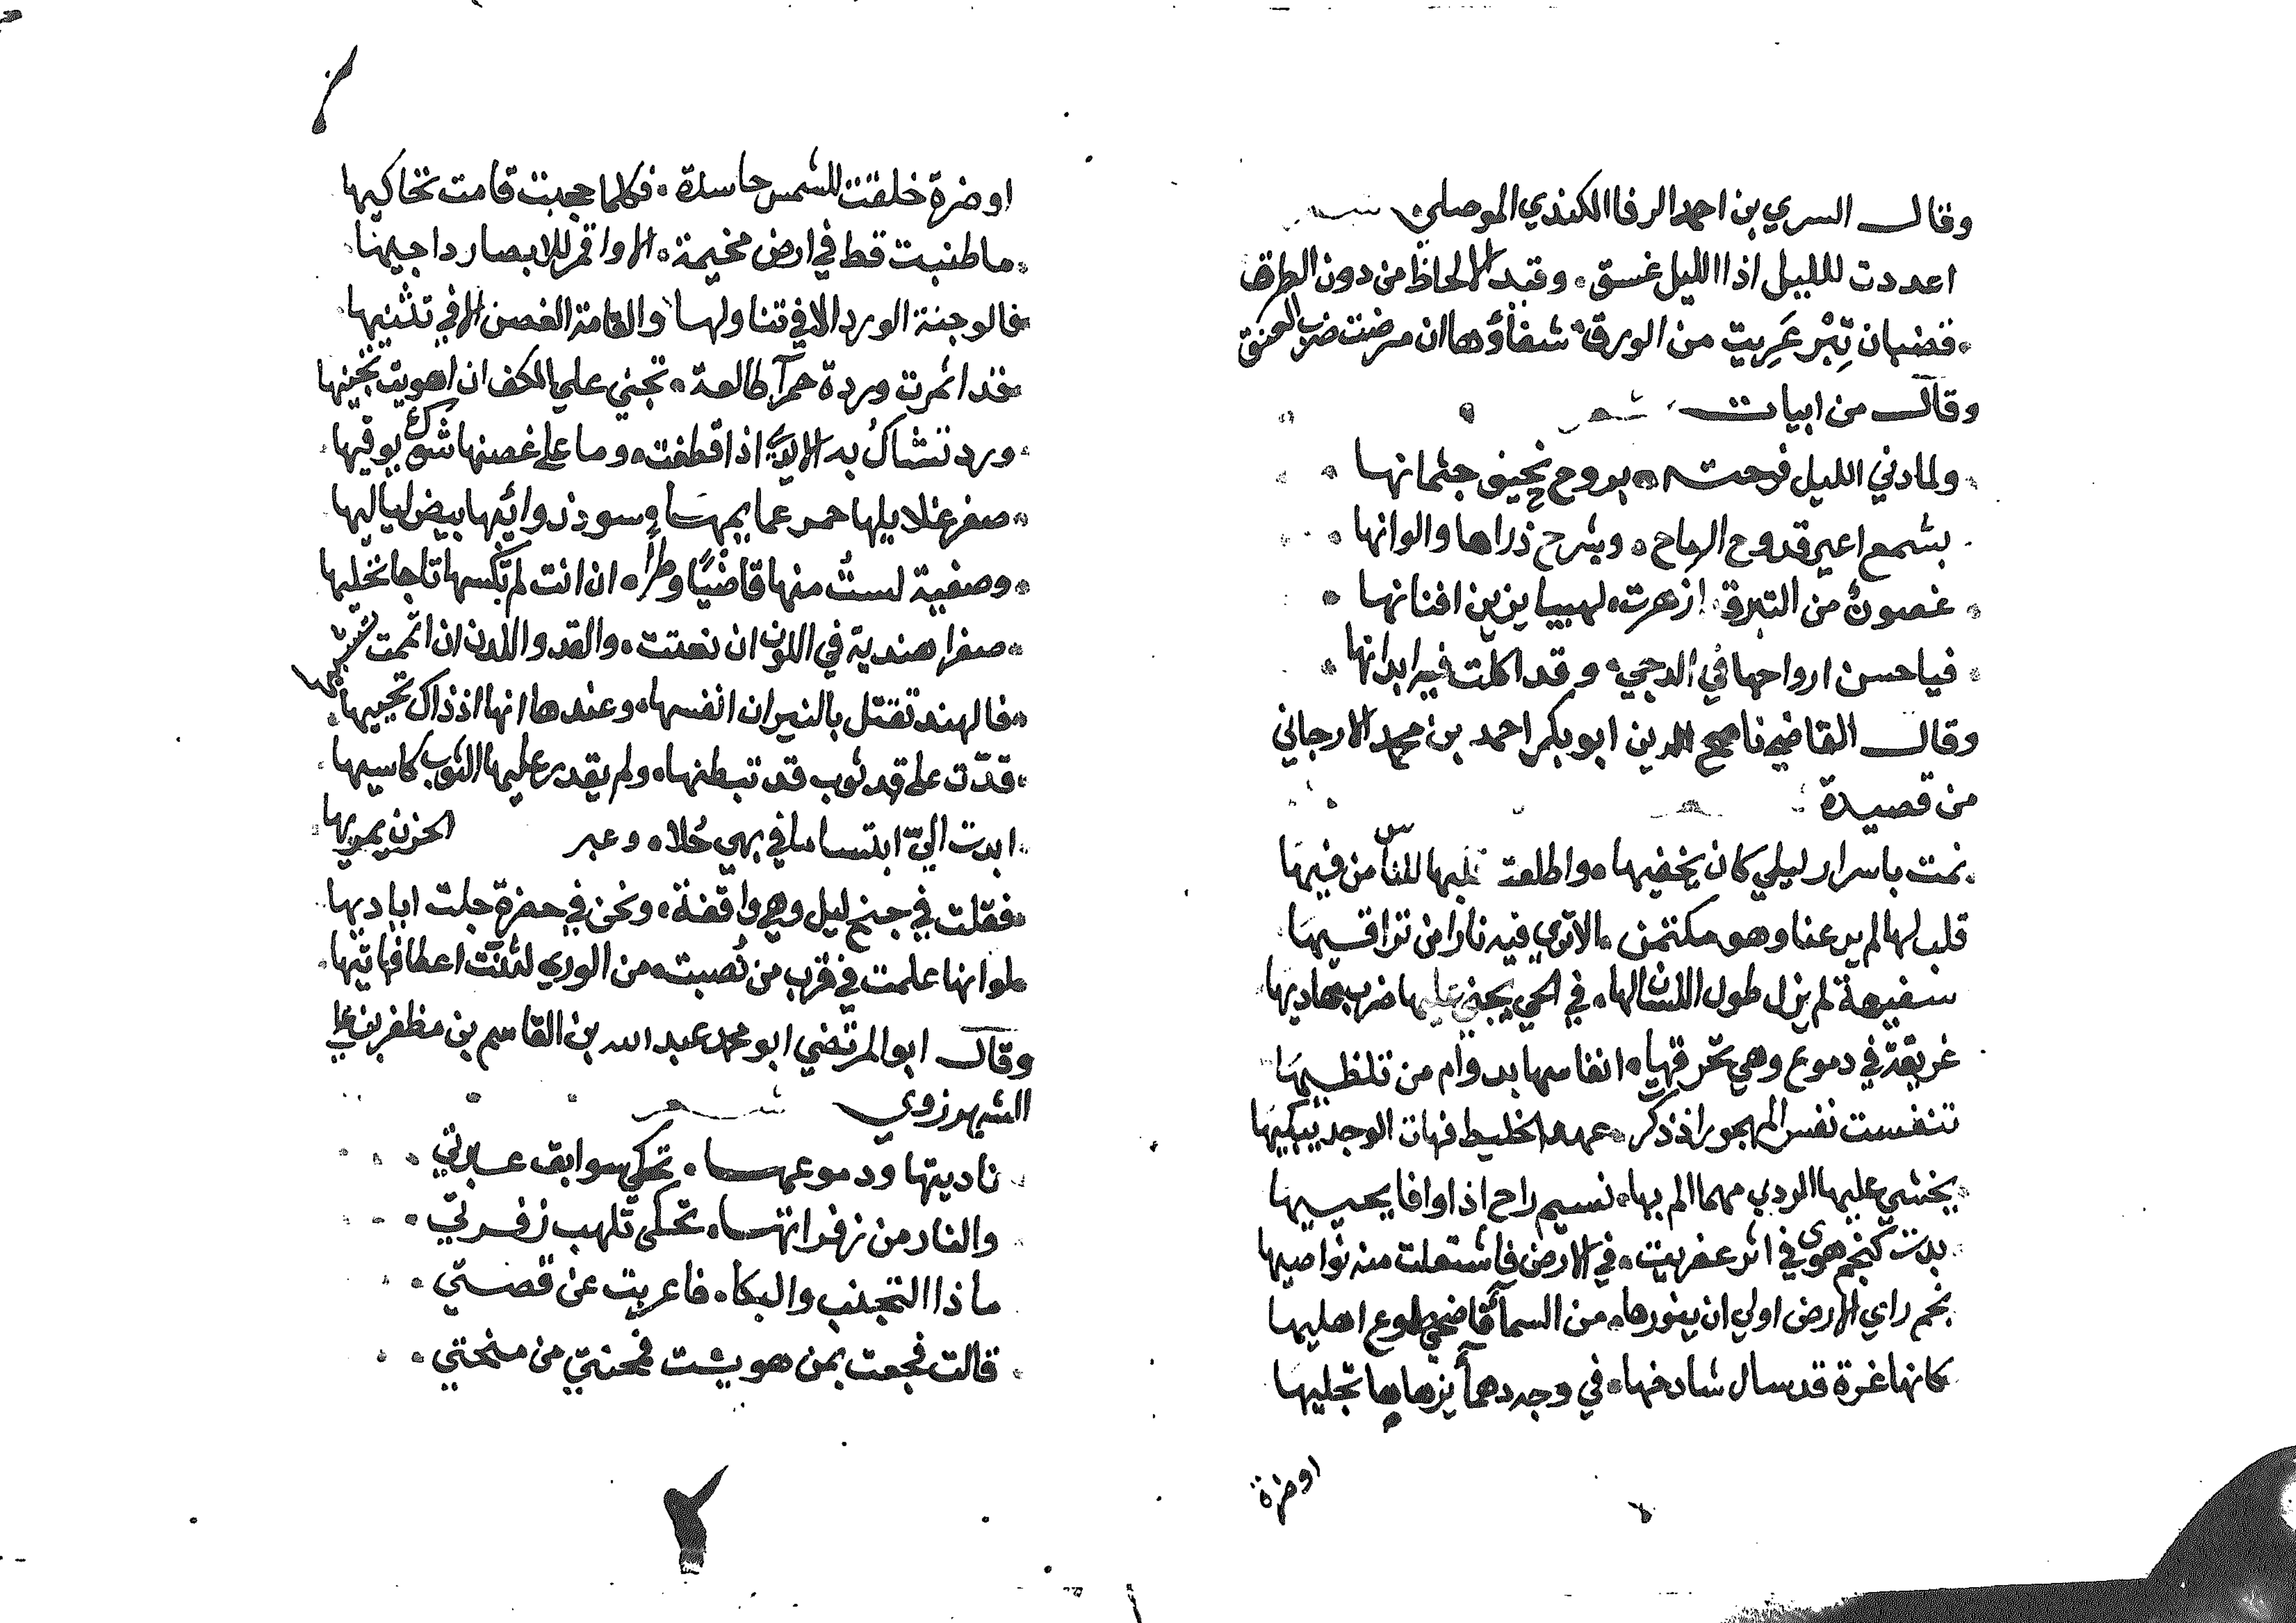 وقال السري بن احمد الرفا الكندي الموصلي شعر
اعددت لليل اذا الليل غسق وقيد الالحاظ من دون الطرق
قضبان تِبْر عَرِيت من الورق شفاؤها ان مرضت ضرب العنق
وقال من ابيات شعر
ولما دني الليل فرحته بروح نحيف جثمانها
بشمع اعير قدوح الرماح وسرح ذراها والوانها
غصون من التبر قد ازهرت لهيبا يزين افنانها
فيا حسن ارواحها في الدجي وقد اكلت فيه ابدانها
وقال القاضي ناصح الدين ابو بكر احمد بن محمد الارجاني
من قصيدة
نمت باسرار ليلي كان يخفيها واطلعت قلبها للناس من فيها
قلب لها لم يرعنا وهو مكتمن الا تري فيه نارا من تراقيها
سفيهة لم يزل طول اللسان لها في الحي يجني عليها ضرب هاديها
غريقة في دموع وهي تحرقها انفاسها بدوام من تلظيها
تنفست نفس المهجور اذ ذكر عهد الخليط فبات الوجد يبكيها
يخشي عليها الردي مهما الم بها نسيم راح اذا وافا يحييها
بدت كنجم هوي في اثر عفريت في الارض فاشتعلت منه نواصيها
نجم راي الارض اولي ان ينورها من السماء فاضحي طوع اهليها
كانها غرة قد سال شادخها في وجه دهماء يزهاها تجليها
او ضرة
او ضرة خلقت للشمس حاسدة فكلما حجبت قامت تحاكيها
ما طنبت قط في ارض مخيمة الا واقمر للابصار داجيها
فالوجنة الورد الا في تناولها والقامة الغصن الا في تثنيها
قد اثمرت وردة حمرآ طالعة تجني علي الكف ان اهويت تجنيها
ورد تشاك به الايدي اذا قطفت وما علي غصنها شوك يوقيها
صفر غلايلها حمر عمايمها وسود ذوائبها بيض لياليها
وصفية لست منها قاضيا وطرا ان انت لم تكسها تاجا تحليها
صفرا هندية في اللون ان نعتت والقد واللدن ان اتممت تشبيها
فالهند تقتل بالنيران انفسها وعندها انها اذ ذاك تحييها
قدّت علي قد ثوب قد تبطنها ولم يقدر عليها الثوب كاسيها
ابدت اليّ ابتساما في بهي حُلا وعبر الحزن يمريها
فقلت في جنح ليل وهي واقفة ونحن في حضرة جلت اياديها
لو انها علمت في قرب من نُصبت من الوري لثنت اعطافها تيها
وقال ابو المرتضي ابو محمد عبد الله بن القاسم بن مظفر بن علي
الشهرزوي شعر
ناديتها ودموعها تحكي سوابق عبرتي
والنار من زفراتها تحكي تلهب زفرتي
ماذا التجنب والبكاء فاعربت عن قصتي
قالت فجعت بمن هويت فمحنتي من منحتي